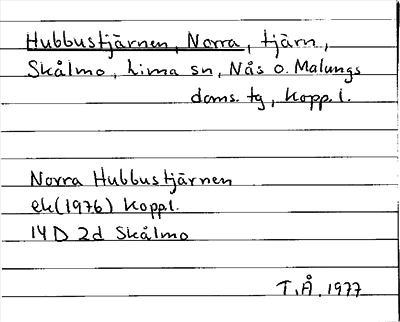 Hubbustjärnen, Norra, tjärn,
Skålmo, Lima sn, Nås o. Malungs
doms. tg, Kopp. l.
Norra Hubbustjärnen
ek (1976) Koppl.
14 D 2d Skålmo
T.Å. 1977